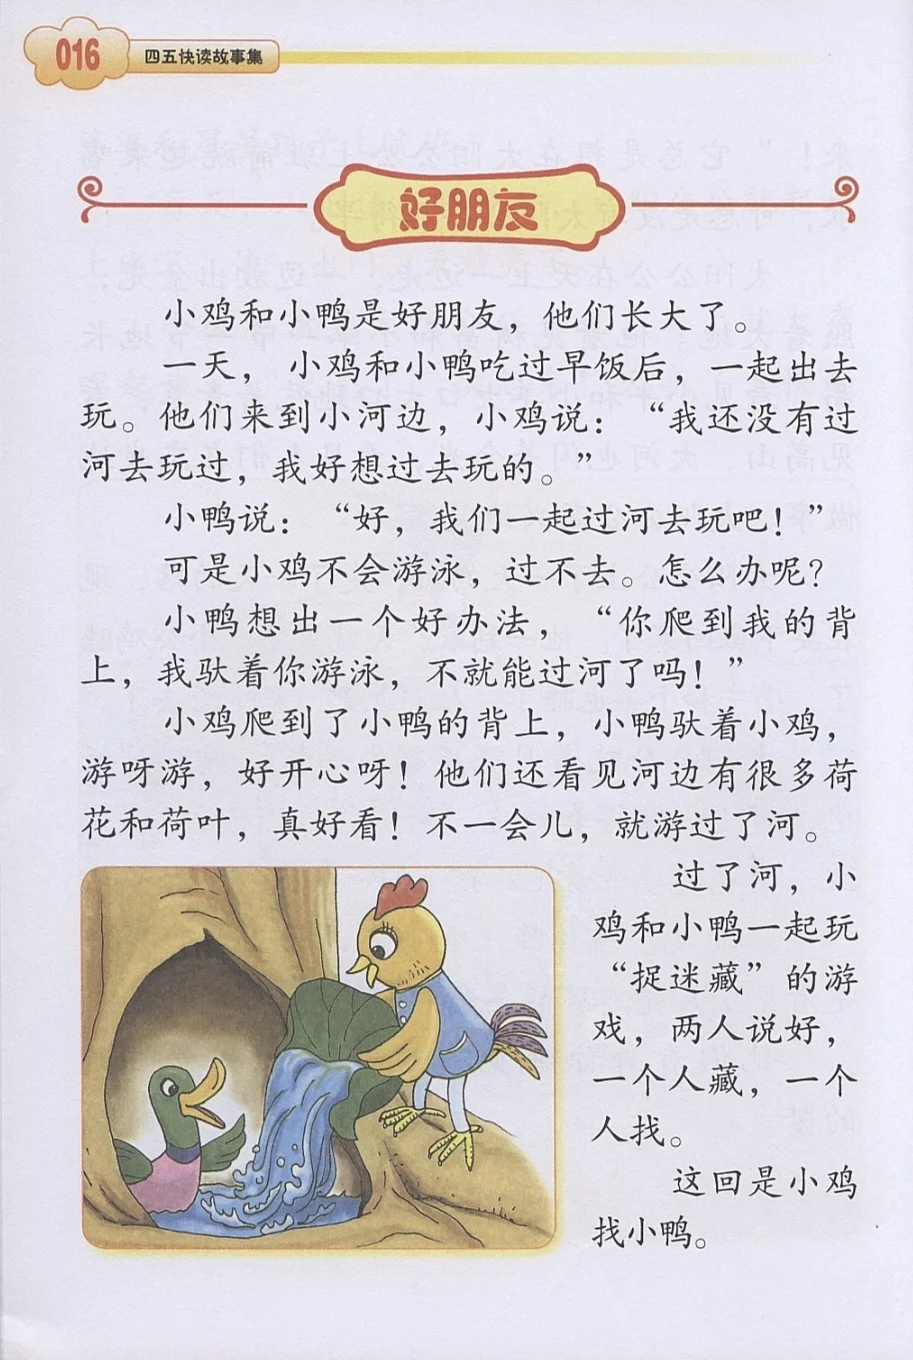 016
四五快读故事集
好朋友
小鸡和小鸭是好朋友，他们长大了。
一天，小鸡和小鸭吃过早饭后，一起出去
玩。他们来到小河边，小鸡说：“我还没有过
河去玩过，我好想过去玩的。”
小鸭说：“好，我们一起过河去玩吧！”
可是小鸡不会游泳，过不去。怎么办呢？
小鸭想出一个好办法，“你爬到我的背
上，我驮着你游泳，不就能过河了吗！”
小鸡爬到了小鸭的背上，小鸭驮着小鸡，
游呀游，好开心呀！他们还看见河边有很多荷
花和荷叶，真好看！不一会儿，就游过了河。
过了河，小
鸡和小鸭一起玩
“捉迷藏”的游
戏，两人说好，
一个人藏，一个
人找。
这回是小鸡
找小鸭。